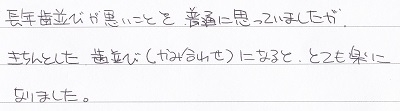 長年歯並びが悪いことを普通に思っていましたが、
きちんとした歯並び(かみ合わせ)になると、とても楽に
なりました。